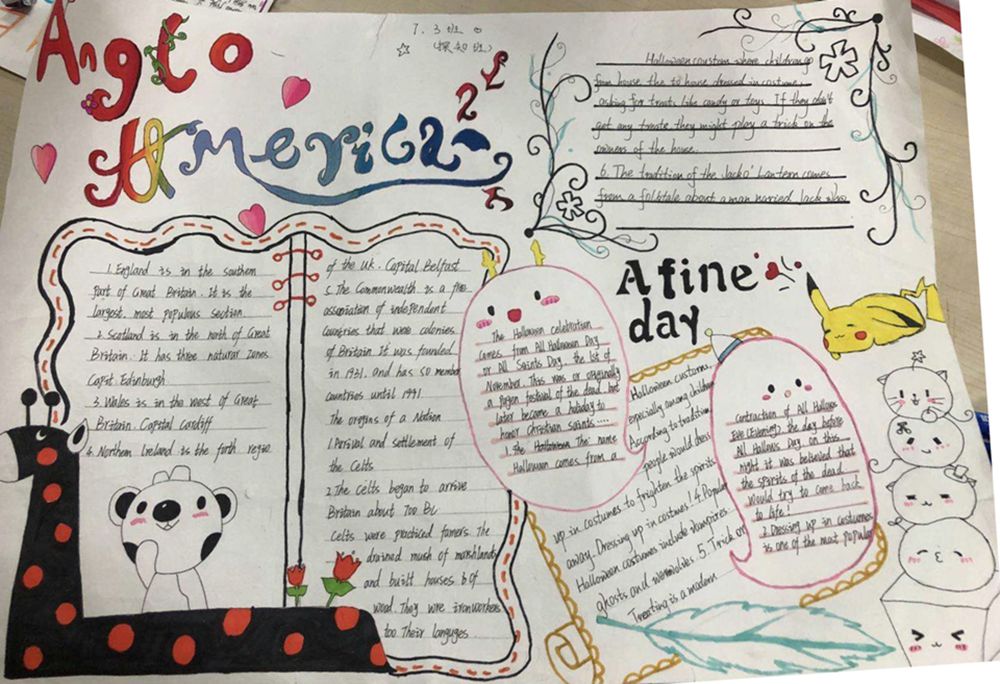 Anglo
America
7.3班
(探知班)
1. England is in the southern
part of Great Britain. It is the
largest, most populous section
2. Scotland is in the north of Great
Britain. It has three natural zones
Capit Edinburgh
3. Wales is in the west of Great
Britain. Capital cardiff
4. Northern Ireland is the forth regio
of the UK. Capital Belfast
5. The Commonwealth is a free
association of independent
countries that were colonies
of Britain It was founded
in 1931, and has 50 member
countries until 1991.
The origins of a Nation
1. Parival and settlement of
the Celts
2. The Celts began to arrive
Britain about 700 BC
Celts were practiced famers. The
drained mush of marshlands
and built houses b of
wood. They wire ironworkers
too Their languges
The Halloween celebration
comes from All Hallowen Day
or All Saints Day, the lst of
November. This was or originally
a pagen festival of the dead, but
later became a holiday to
honor Christian saints....
1. The Halloween The name
Halloween comes from a
Contraction of All Hallows
Eve (Evening), the day before
All Hallows Day on this
night it was believed that
the spirits of the dead
Would try to come back
to life!
2. Dressing up in costumes
is one of the most popular
Halloween customs,
especially among children
According to tradition
people would dress
up in costumes to frighten the spirits
away. Dressing up in costumes! 4. Popular
Halloween costumes include vampires.
ghosts and 5. Trick or
Treating is a modern
Halloween where children go
from house the to house dressed in costume,
asking for treats like candy or toys. If they don't
get any they might play a trick on the
owners of the house.
6. The tradition of the Jack o' Lantern comes
from a folktale about a man named Jack who
A fine
day